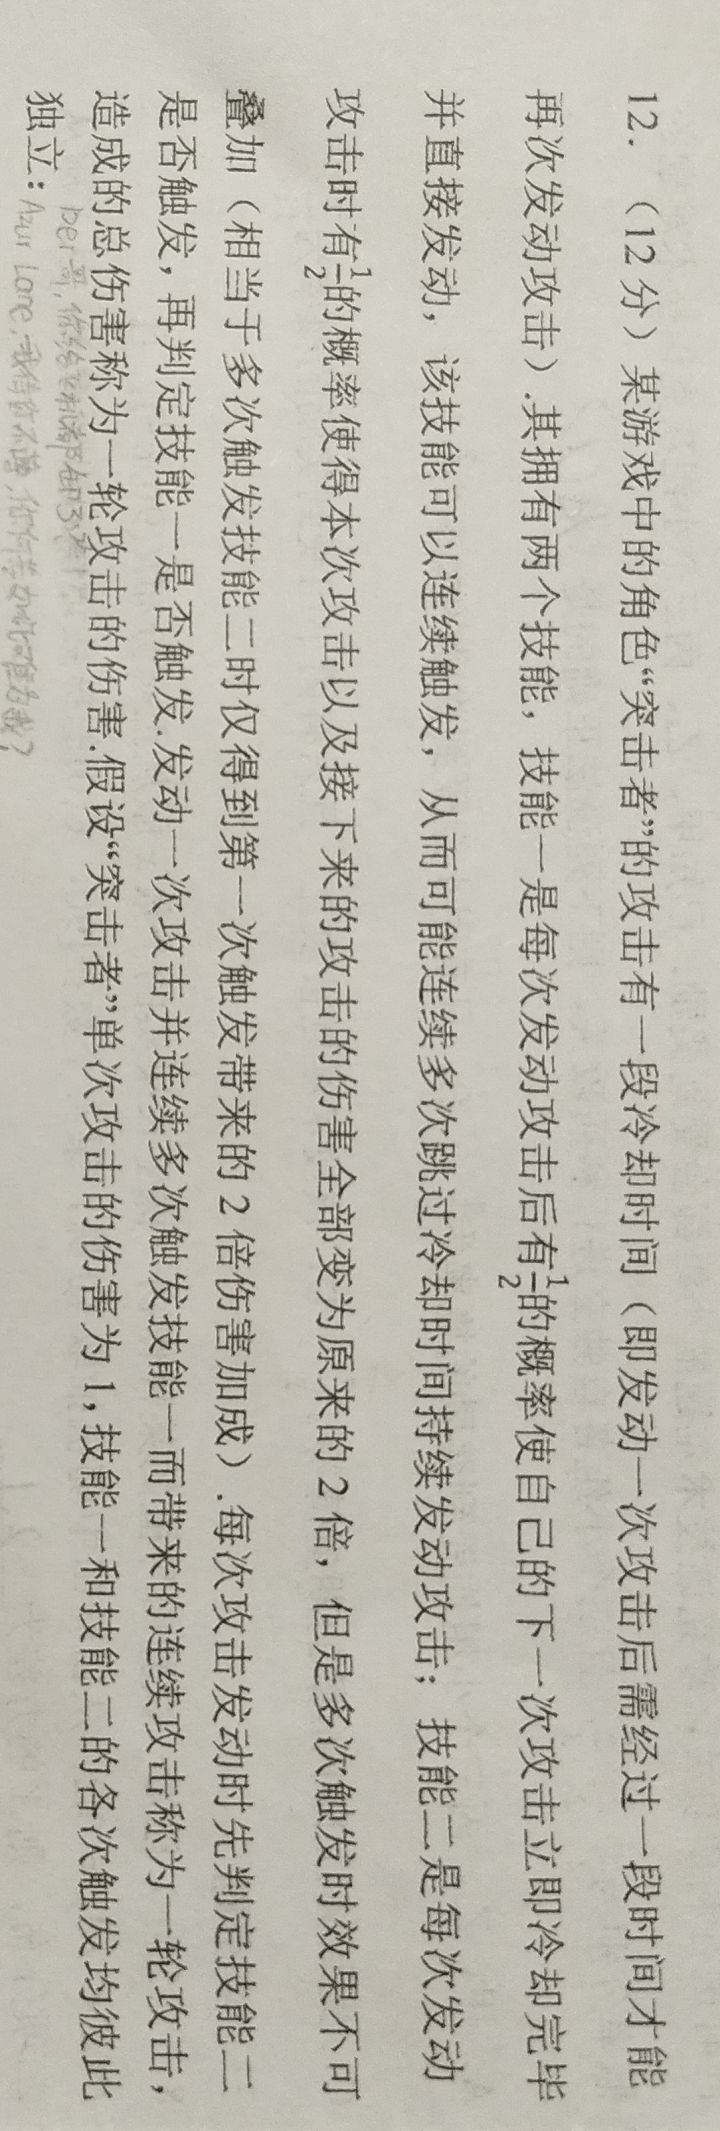 12. （12 分）某游戏中的角色“突击者”的攻击有一段冷却时间（即发动一次攻击后需经过一段时间才能
再次发动攻击）.其拥有两个技能，技能一是每次发动攻击后有1/2的概率使自己的下一次攻击立即冷却完毕
并直接发动，该技能可以连续触发，从而可能连续多次跳过冷却时间持续发动攻击；技能二是每次发动
攻击时有1/2的概率使得本次攻击以及接下来的攻击的伤害全部变为原来的 2 倍，但是多次触发时效果不可
叠加（相当于多次触发技能二时仅得到第一次触发带来的 2 倍伤害加成）.每次攻击发动时先判定技能二
是否触发，再判定技能一是否触发.发动一次攻击并连续多次触发技能一而带来的连续攻击称为一轮攻击，
造成的总伤害称为一轮攻击的伤害.假设“突击者”单次攻击的伤害为 1，技能一和技能二的各次触发均彼此
独立：
ber哥，你
Azur Lane，我